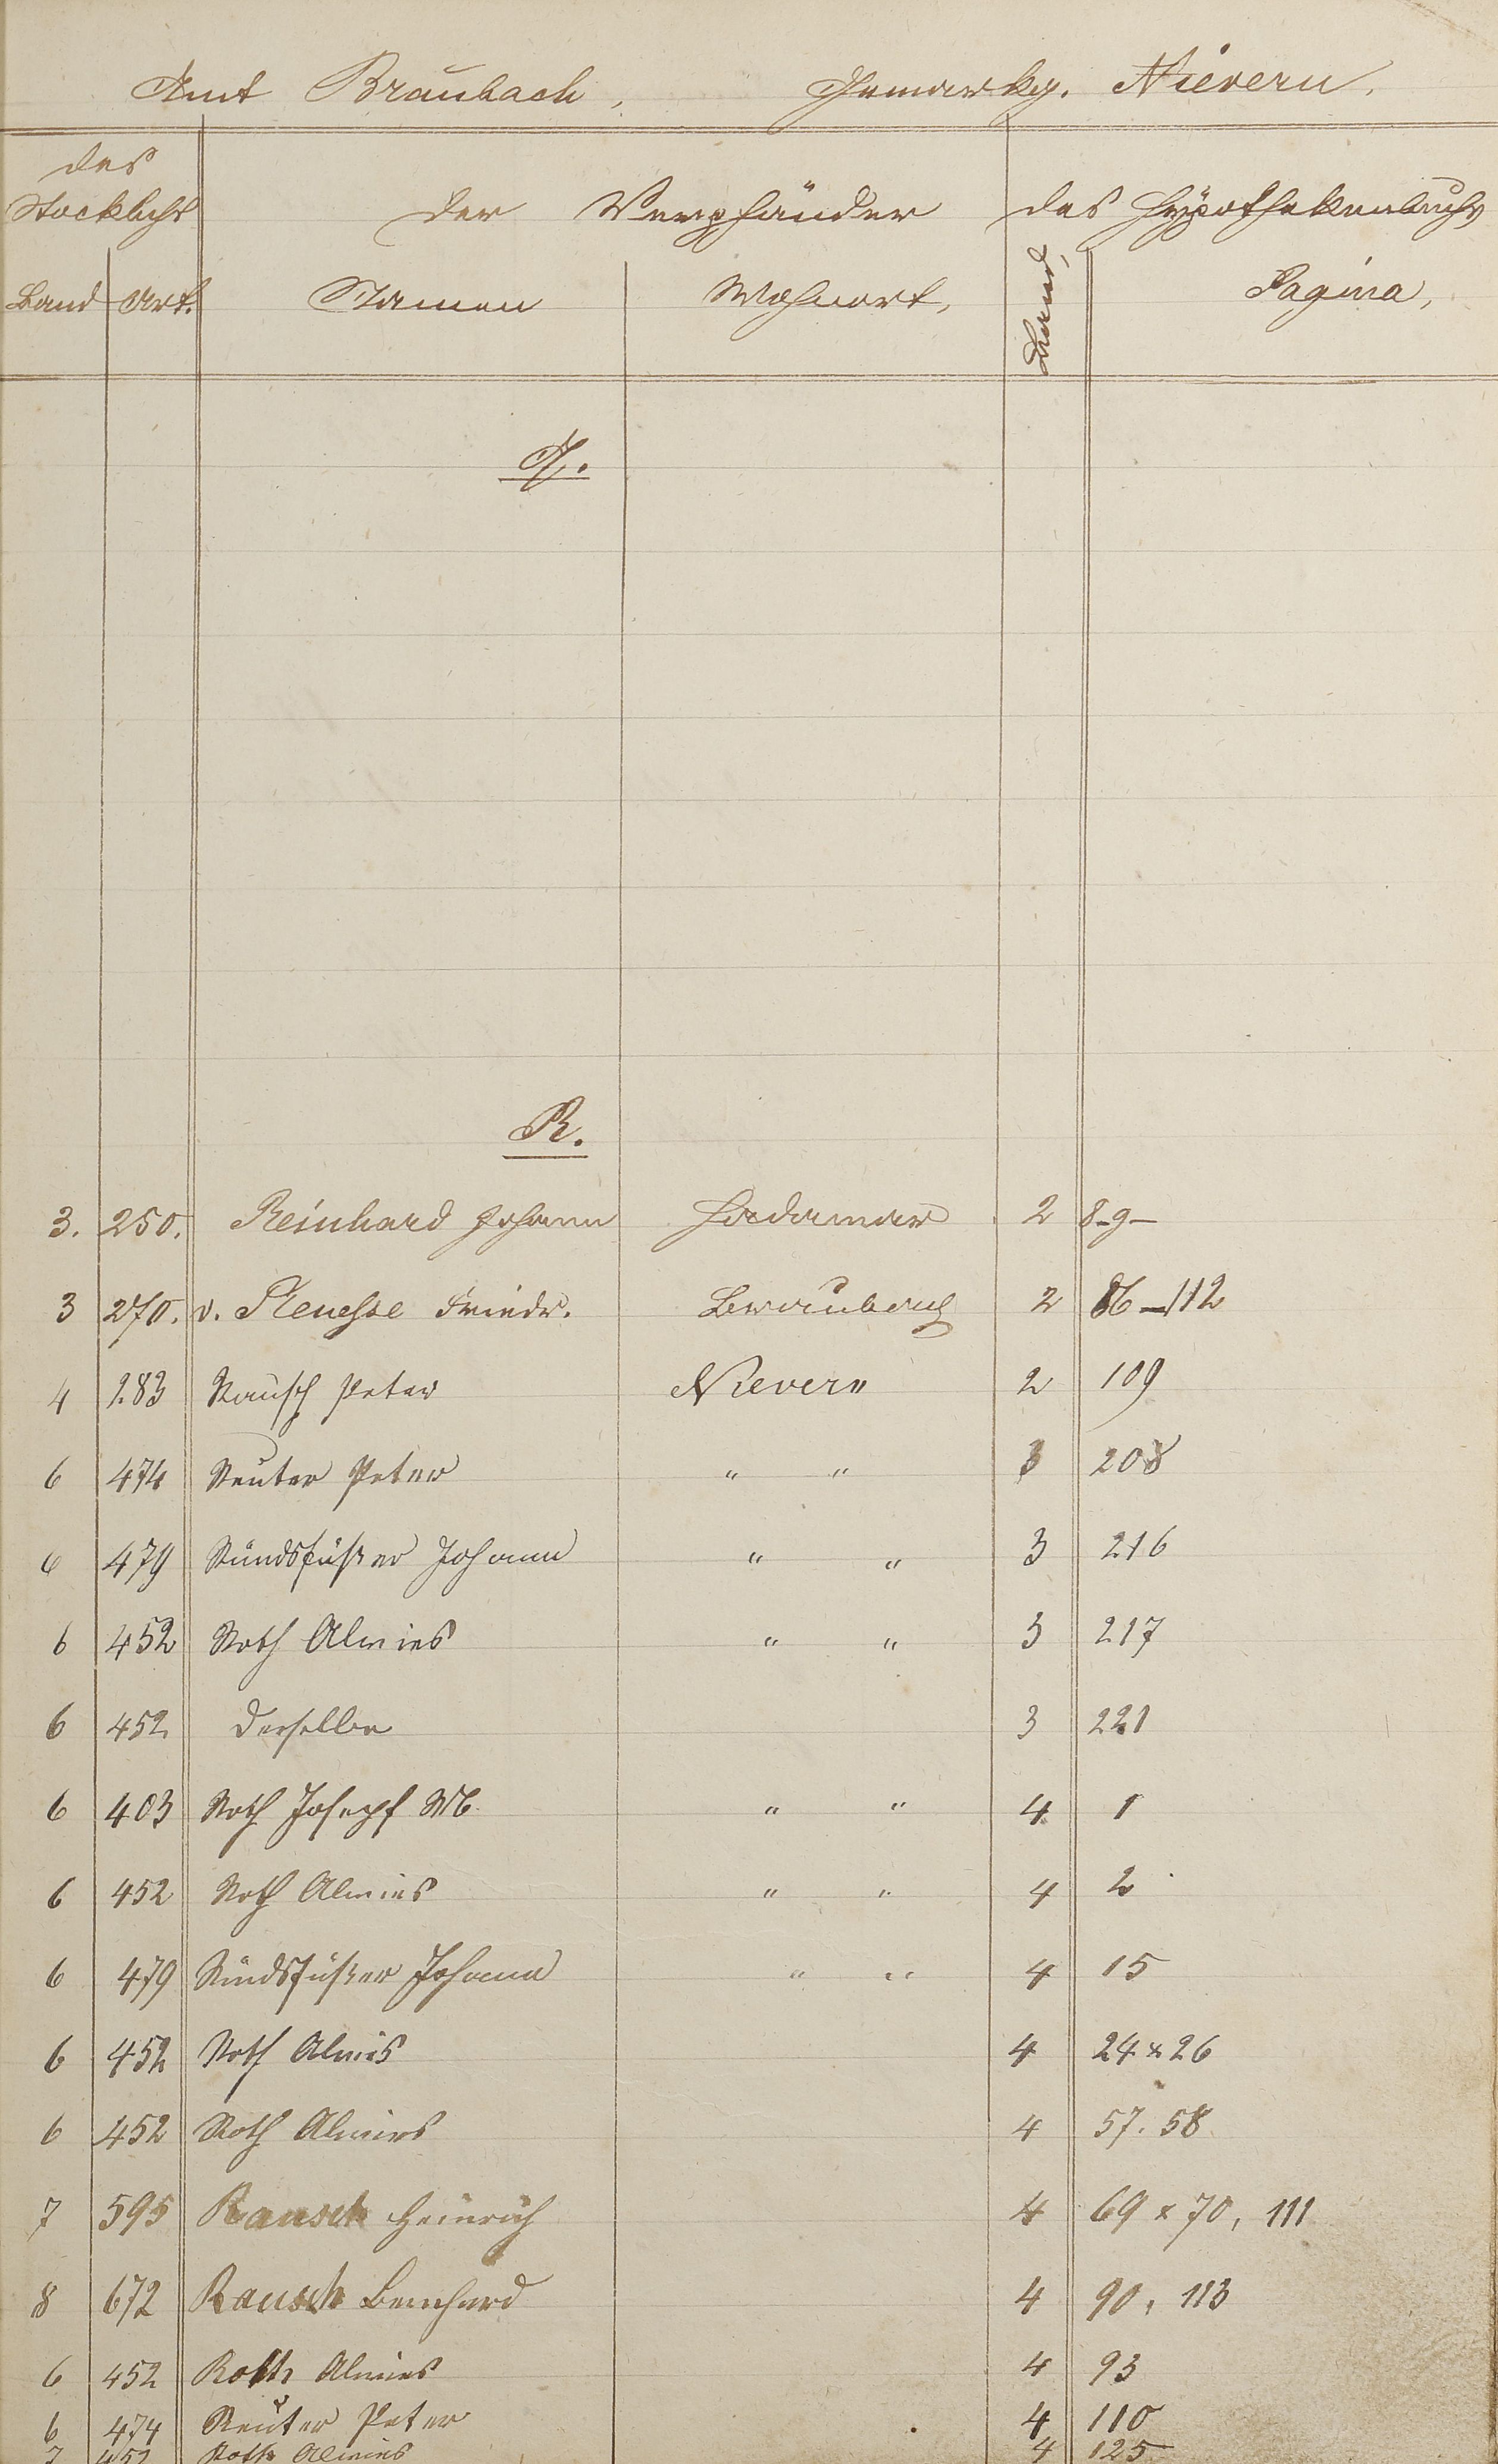 Amt Braubach. Gemarkg. Nievern.
des Stockbchs
der Verpfänder
des Hypothekenbuchs
Band Art. Namen Wohnort, Band, Pagina,
R.
3. 250. Reinhard Johann Hadamar 2 8-9-
3 270. v. Friedr. Braubach 2 86-112
4 283 Rausch Peter Nievern 2 109
6 474 Reuter Peter " " 3 208
6 479 Ründsfüßer Johann " " 3 216
6 452 Roth " " 3 217
6 452 Derselbe 3 221
6 403 Roth Josepf " " 4 1
6 452 Roth " " 4 2
6 479 Ründsfüßer Johann " " 4 15
6 452 Roth 4 24 x 26
6 452 Roth 4 57. 58
7 595 Rausch Heinrich 4 69 x 70, 111
8 672 Rausch Bernhard 4 90, 113
6 452 Roth 4 93
6 474 Reuter Peter 4 110
7 452 Roth 4 125